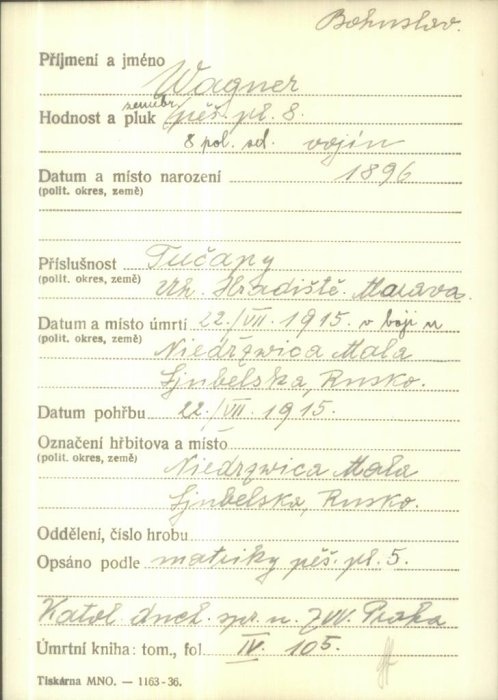 Bohuslav.
Příjmení a jméno
Wagner
zeměbr.
Hodnost a pluk pěš. pl. 8.
8 pol. set. vojín
Datum a místo narození 1896
(polit. okres, země)
Příslušnost Tučapy
(polit. okres, země) Uh. Hradiště. Morava.
Datum a místo úmrtí 22./VII. 1915. v boji u
(polit. okres, země) Niedrzwica Mala
Ljubelska, Rusko.
Datum pohřbu 22./VII. 1915.
Označení hřbitova a místo
(polit. okres, země) Niedrzwica Mała
Ljubelska, Rusko.
Oddělení, číslo hrobu
Opsáno podle matriky pěš. pl. 5.
Katol. duch. spr. u ZVV. Praha
Úmrtní kniha: tom., fol. IV. 105.
Tiskárna MNO. — 1163-36.